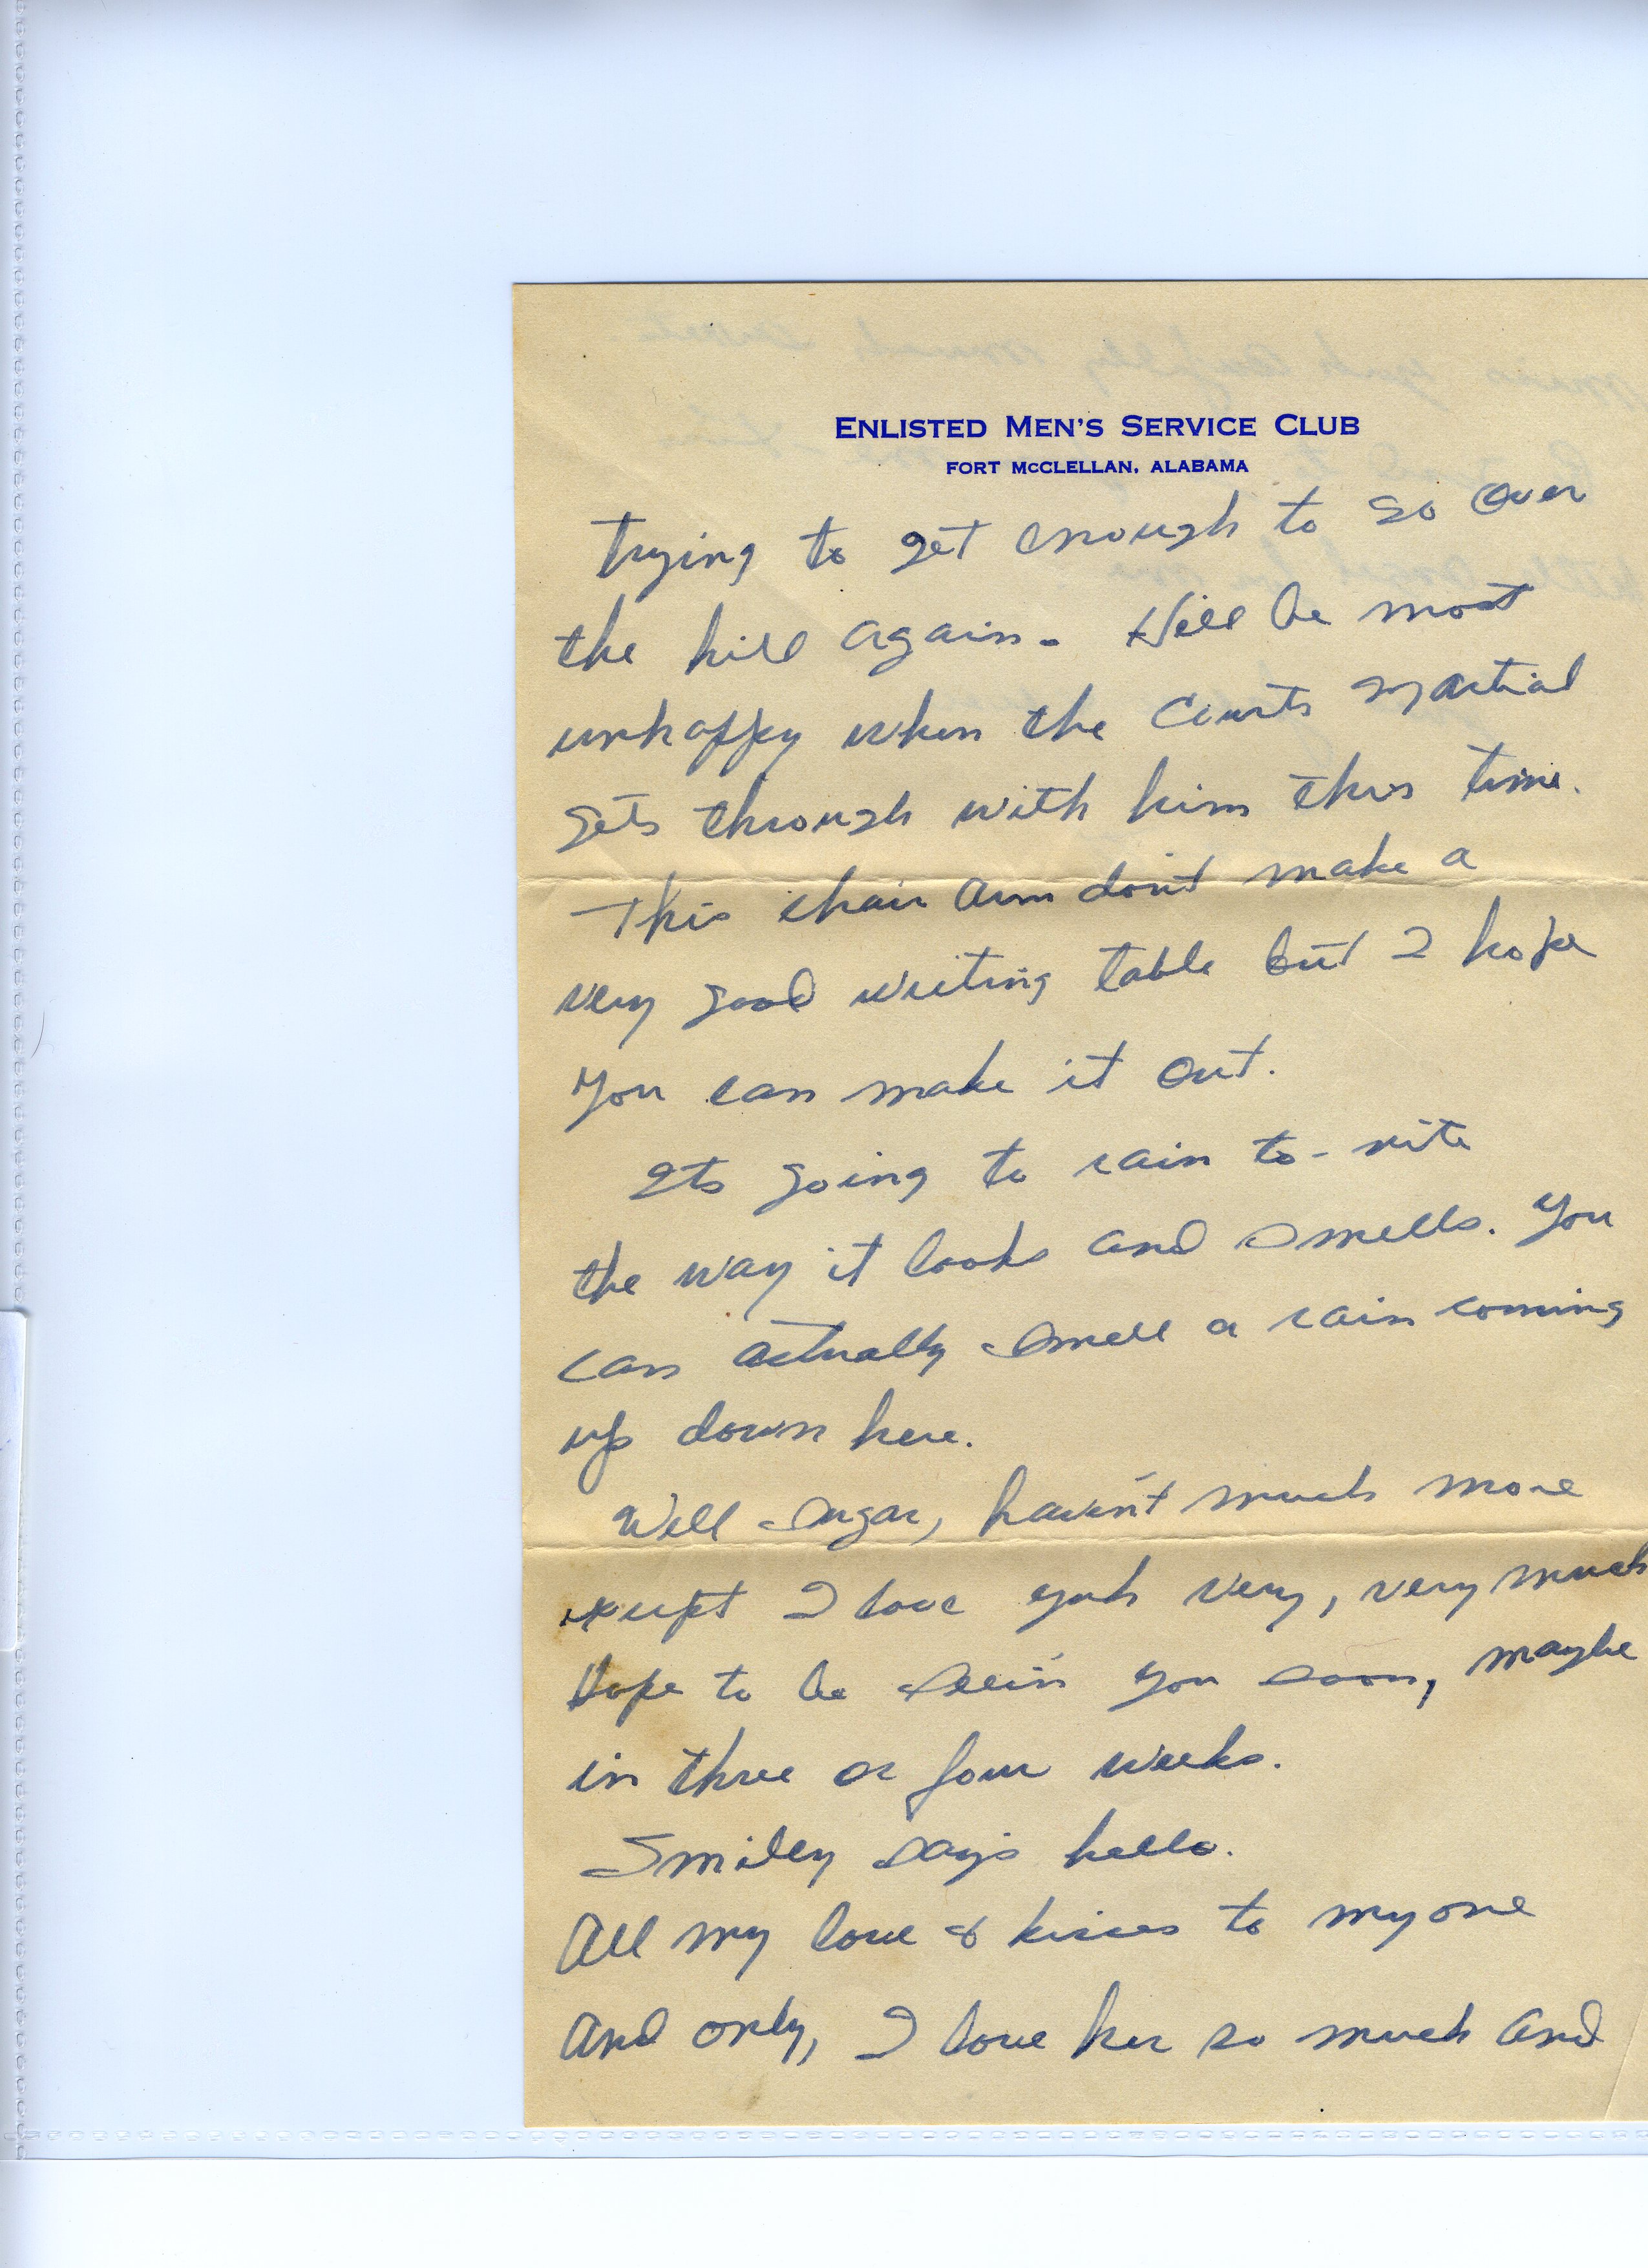 ENLISTED MEN'S SERVICE CLUB
FORT McCLELLAN, ALABAMA
trying to get enough to go over
the hill again. He'll be most
unhappy when the Courts Martial
gets through with him this time.
This chair arm don't make a
very good writing table but I hope
you can make it out.
Its going to rain to-nite
the way it looks and smells. You
can actually smell a rain coming
up down here.
Well sugar, haven't much more
except I love yuh very, very much
Hope to be seein' you soon, maybe
in three or four weeks.
Smiley says hello.
All my love & kisses to my one
and only, I love her so much and